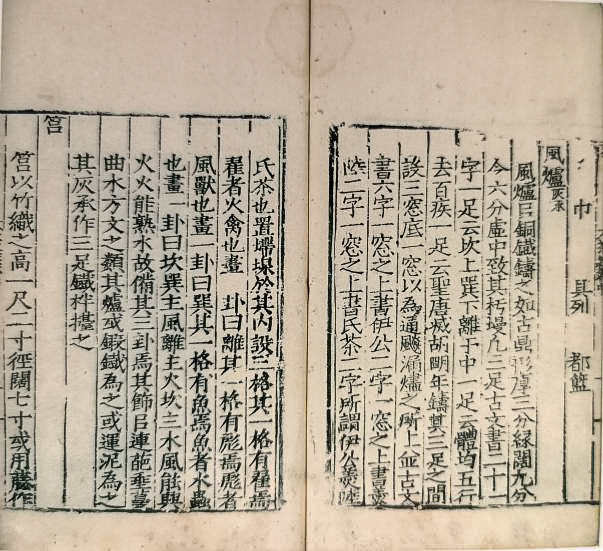 巾 具列 都籃
風爐灰承
風爐以銅鐵鑄之如古鼎形厚三分緣闊九分
令六分虛中致其杇墁凡三足古文書二十一
字一足云坎上巽下離于中一足云體均五行
去百疾一足云聖唐滅胡明年鑄其三足之間
設三窓底一窓以為通飈漏燼之所上並古文
書六字一窓之上書伊公二字一窓之上書羹
陸二字一窓之上書氏茶二字所謂伊公羹陸
氏茶也置墆㙞於其内設三格其一格有翟焉
翟者火禽也畫一卦曰離其一格有彪焉彪者
風獸也畫一卦曰巽其一格有魚焉魚者水蟲
也畫一卦曰坎巽主風離主火坎主水風能興
火火能熟水故備其三卦焉其飾以連葩垂蔓
曲水方文之類其爐或鍛鐵為之或運泥為之
其灰承作三足鐵柈擡之
筥
筥以竹織之高一尺二寸徑闊七寸或用藤作